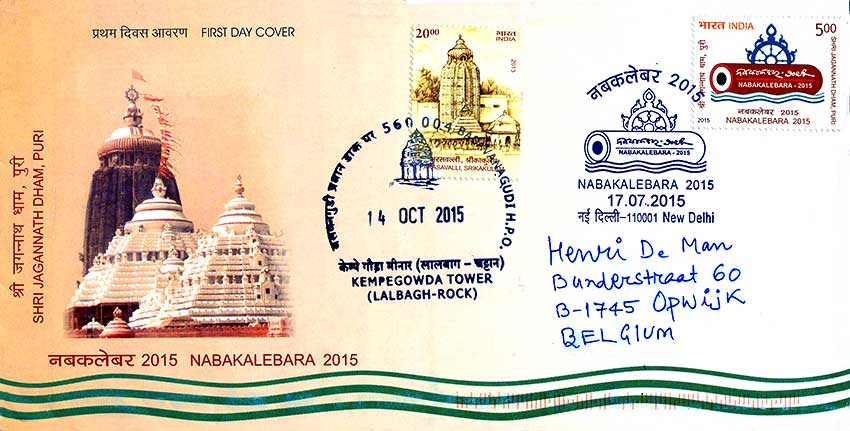 प्रथम दिवस आवरण FIRST DAY COVER
श्री जगन्नाथ धाम, पुरी
SHRI JAGANNATH DHAM, PURI
नबकलेबर 2015 NABAKALEBARA 2015
20.00
भारत
INDIA
2013
अरसवल्ली, श्रीकाकुलम
ASAVALLI, SRIKAKULAM
बसवनगुडी प्रधान डाक घर 560 004 BASAVANGUDI H.P.O.
14 OCT 2015
केम्पे गौड़ा मीनार (लालबाग - चट्टान)
KEMPEGOWDA TOWER
(LALBAGH-ROCK)
भारत INDIA
5.00
श्री जगन्नाथ धाम, पुरी
SHRI JAGANNATH DHAM, PURI
NABAKALEBARA - 2015
2015
नबकलेबर 2015
NABAKALEBARA 2015
नबकलेबर 2015
NABAKALEBARA - 2015
NABAKALEBARA 2015
17.07.2015
नई दिल्ली-110001 New Delhi
Henri De Man
Bunderstraat 60
B-1745 Opwijk
BELGIUM